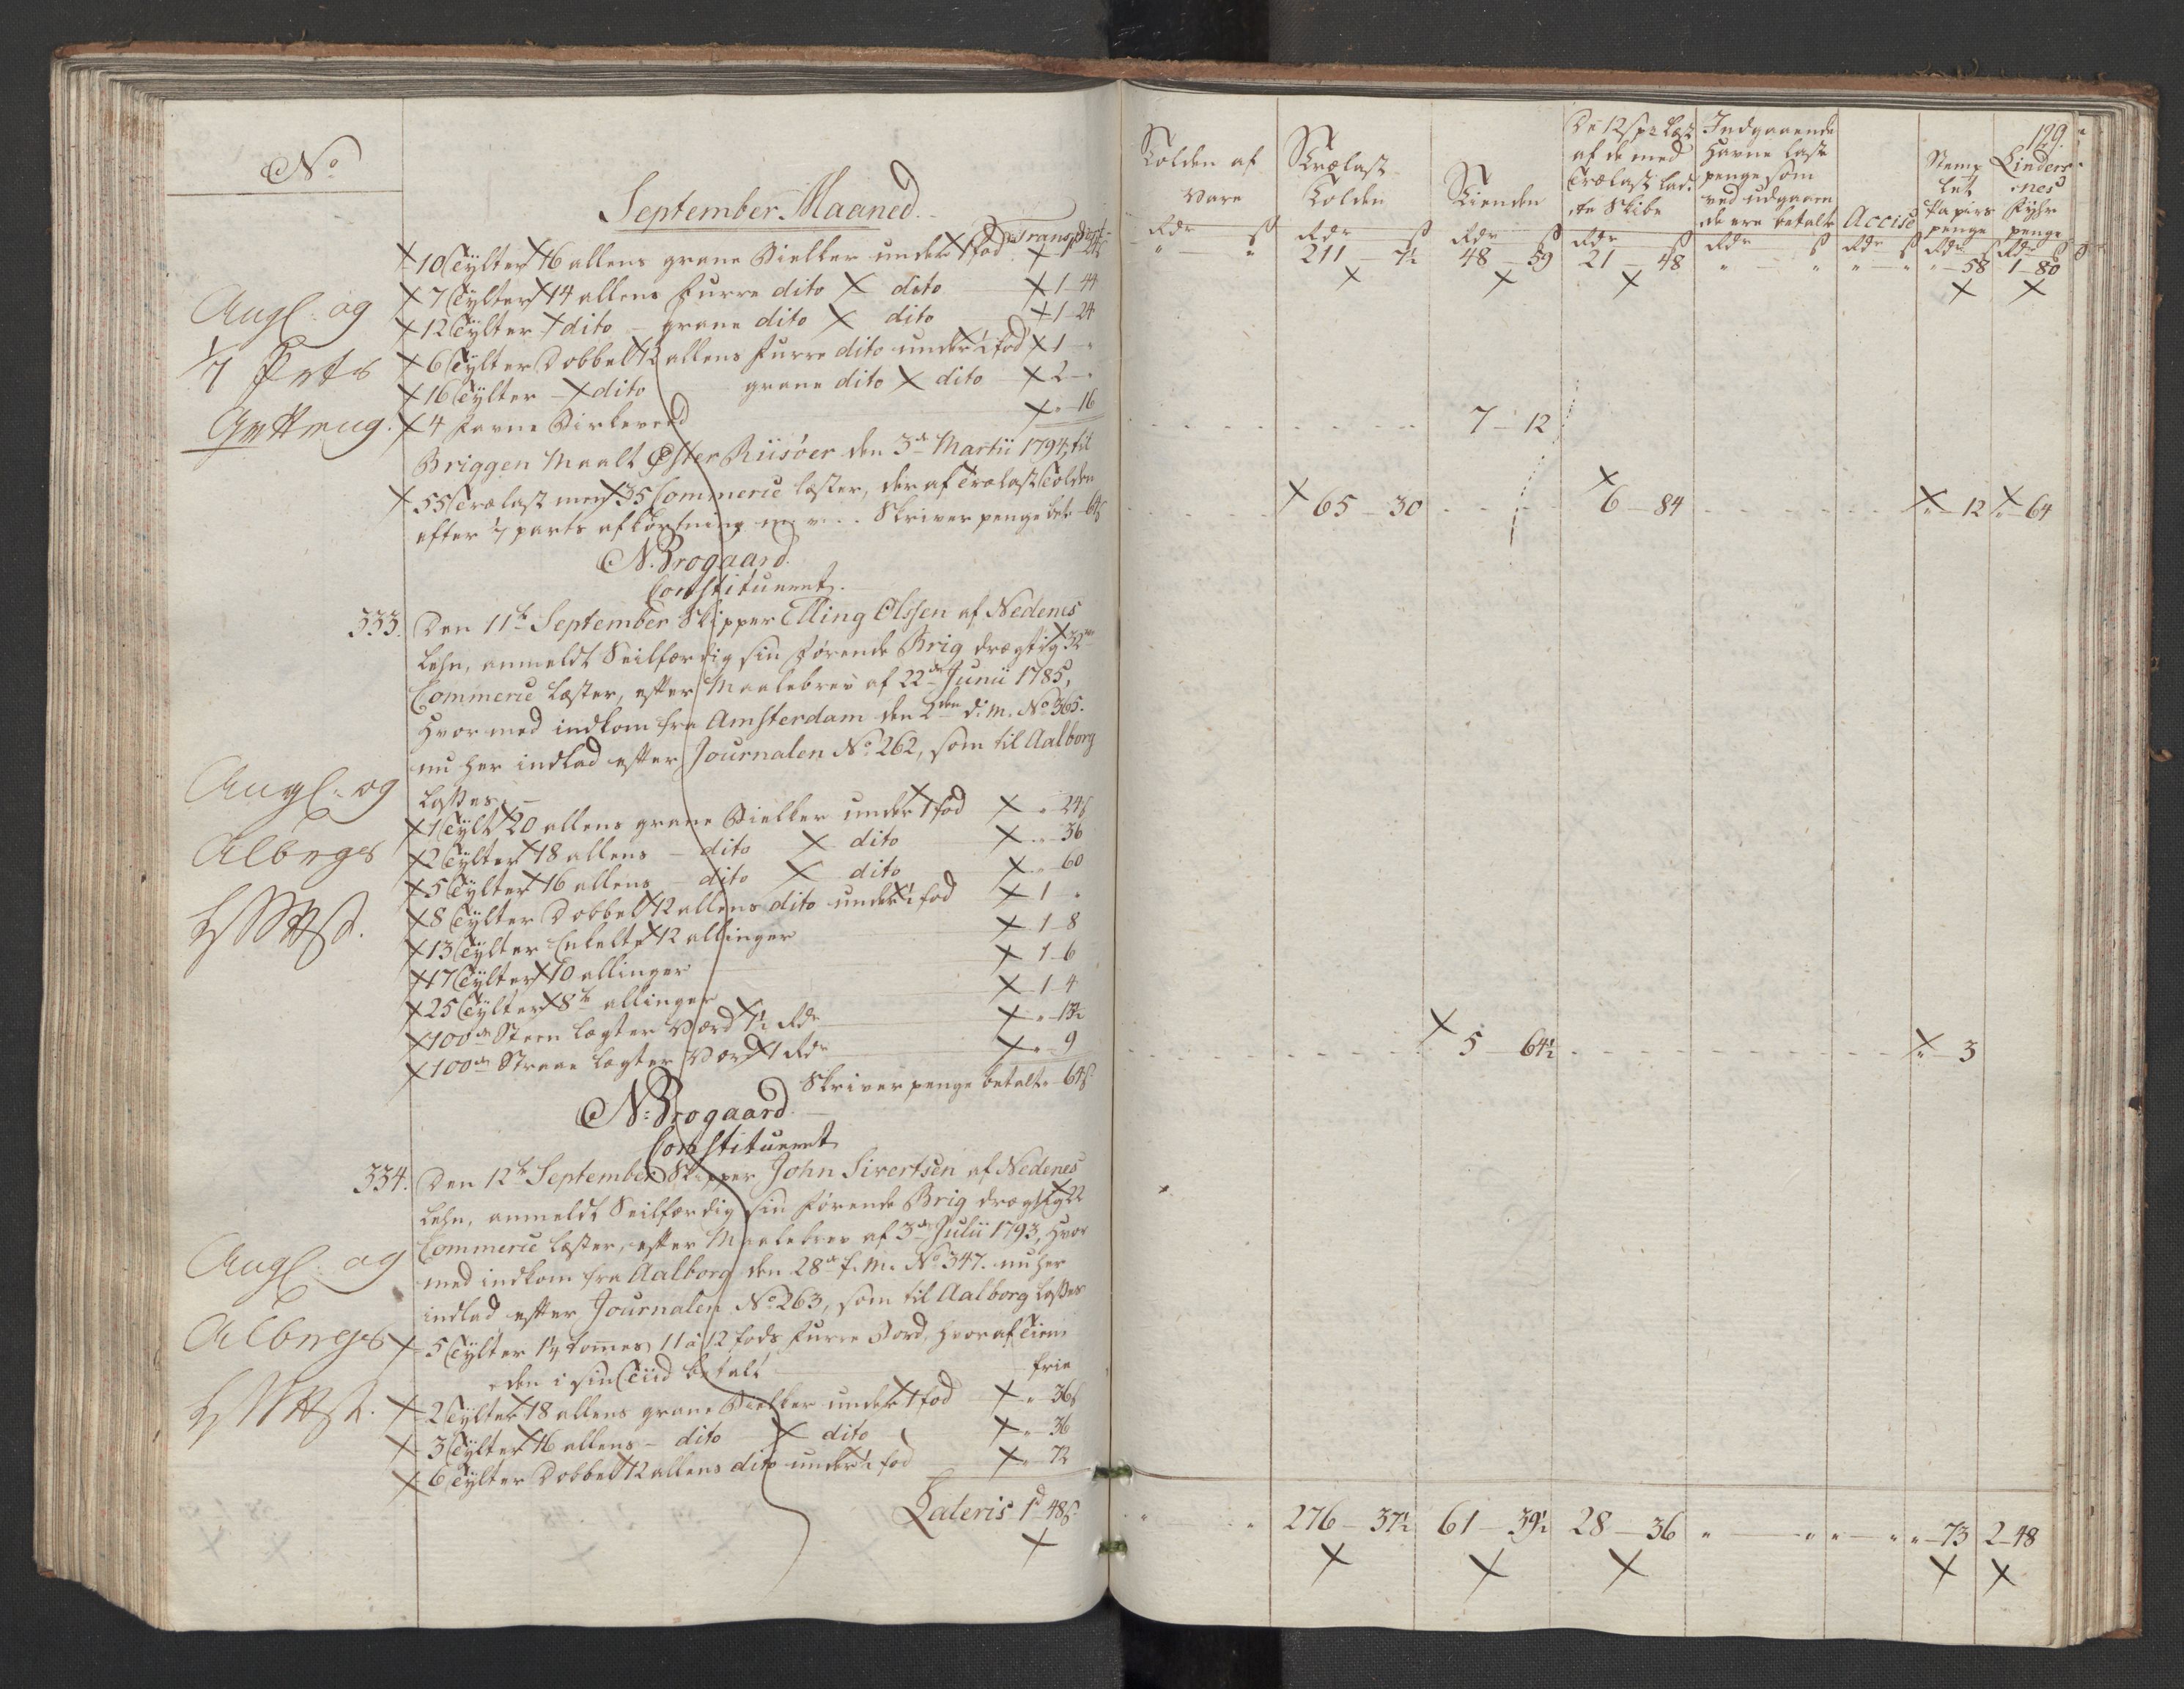 No
September Maaned.
Transport
10 Tylter 16 allens grane Bielker under 1 fod 1-24ß
7 Tylter 14 allens furre dito dito 1-44
12 Tylter dito - grane dito dito 1-24
6 Tylter Dobbelt 12 allens furre dito under ½ fod 1-"
16 Tylter - dito grane dito dito 2-"
4 favne Birkeved "-16
Angl: og
1/7 Prts
Briggen Maalt Øster Riisøer den 3de Martii 1794, til
55 Trælast men 35 Commerce læster, der af Trælast Tolden
efter 1/7 parts afkortning Skriver penge bet. 64ß
N. Brogaard.
Constitueret.
333. Den 11te September Skipper Elling Olssen af Nedenes
Lehn, anmeldt Seilfærdig sin førende Brig drægtig 32
Commerce Læster, efter Maalebrev af 22de Junii 1785,
hvor med indkom fra Amsterdam den 2den d: m. No 365.
nu her indlad efter Journalen No 262, som til Aalborg
Losses
Angl: og
Albrgs
1 Tylt 20 allens grane Bielker under 1 fod "-24ß
2 Tylter 18 allens - dito dito "-36
5 Tylter 16 allens - dito dito "-60
8 Tylter Dobbelt 12 allens dito under ½ fod 1-"
13 Tylter Enkelte 12 allinger 1-8
17 Tylter 10 allinger 1-6
25 Tylter 8te allinger 1-4
100de Steen lægter Værd 1½ Rdr "-13½
100de Straae lægter Værd 1 Rdr "-9
Skriver penge betalt "-64ß
N: Brogaard.
Constitueret
334. Den 12te September Skipper John Sivertsen af Nedenes
Lehn, anmeldt Seilfærdig sin førende Brig drægtig 22
Commerce Læster, efter Maalebrev af 3de Julii 1793, hvor
med indkom fra Aalborg den 28de f. m. No 347. nu her
indlad efter Journalen No 263, som til Aalborg Losses
Angl: og
Albrgs
5 Tylter 1¼ tommes 11 à 12 fods furre Bord, hvoraf Tien
den i sin Tiid betalt frie
2 Tylter 18 allens grane Bielker under 1 fod "-36ß
3 Tylter 16 allens - dito dito "-36
6 Tylter Dobbelt 12 allens dito under ½ fod "-72
Lateris 1d 48ß
129.
Tolden af Vare
Trælast Tolden
Tienden
De 12 ß pr Læst af de med Trælast lad: te Skibe
Indgaaende Havne Laste penge som ved udgaaen de ere betalt
Accise
Stemp let Papiirs penge
Linders nes Fyhr penge
Rdr ß Rdr ß Rdr ß Rdr ß Rdr ß Rdr ß Rdr ß Rdr ß
" " 211-7½ 48-59 21-48 " " " " "-58 1-80
7-12
65-30 6-84 "-12 "-64
5-64½ "-3
" " 276-37½ 61-39½ 28-36 " " " " "-73 2-48